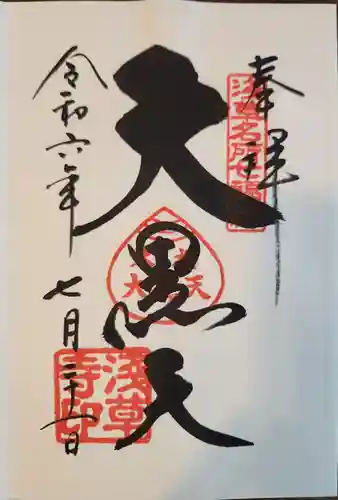 奉拝
浅草名所七福神
大黒天
浅草寺印
令和六年
七月三十一日